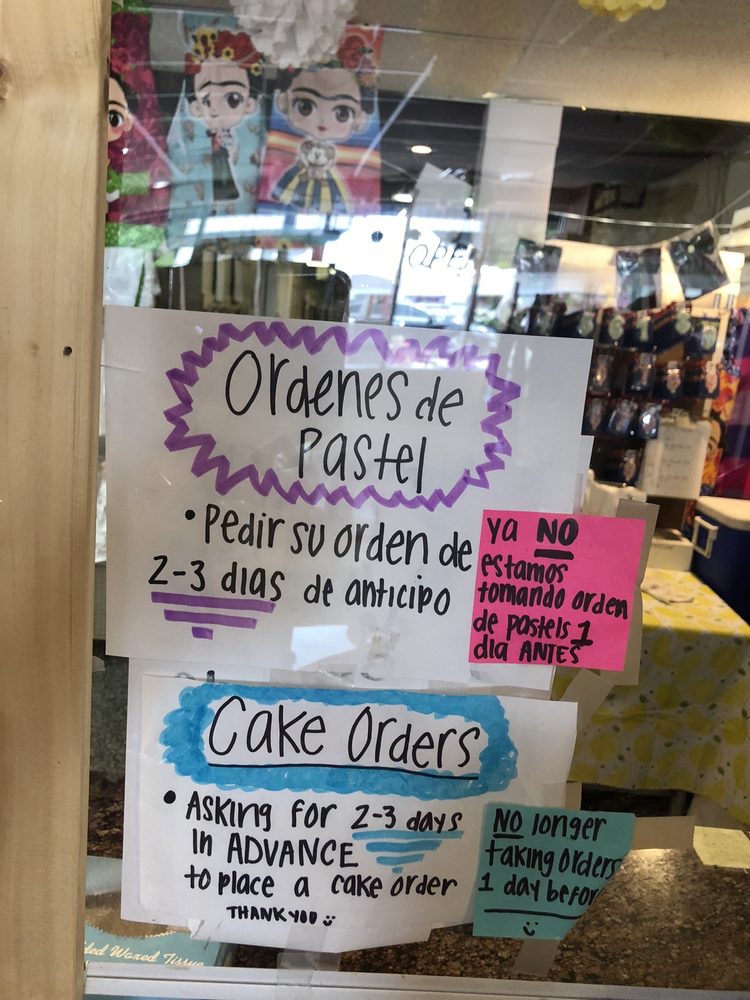 OPEN
Ordenes de
Pastel
• Pedir su orden de
2-3 dias de anticipo
ya NO
estamos
tomando orden
de pastels 1
dia ANTES
Cake Orders
• ASKing for 2-3 days
in ADVANCE
to place a cake order
THANK YOU
NO longer
taking orders
1 day before
ded Waxed Tissue